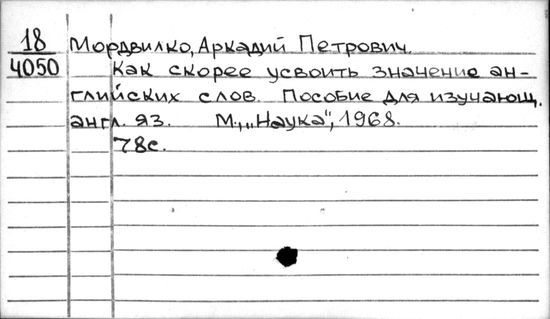 18 Мордвилко, Аркадий Петрович.
4050 Как скорее усвоить значение ан-
глийских слов. Пособие для изучающ.
англ. яз. М., „Наука", 1968.
78с.